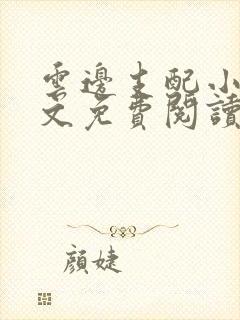 雲邊主配小
文免費閱讀
顏婕